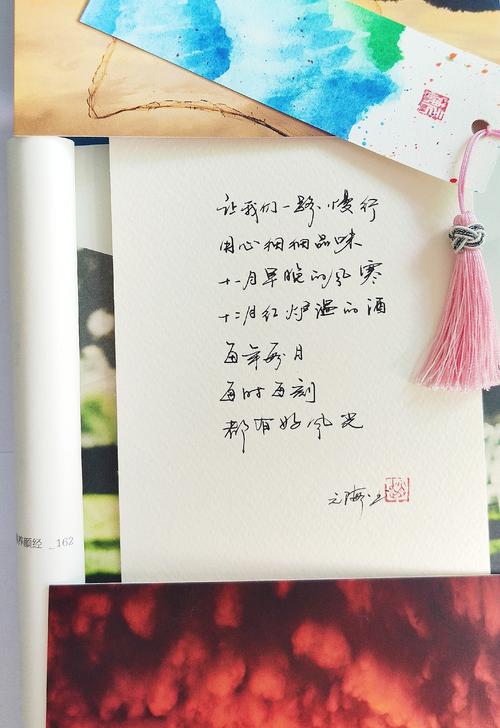 让我们一路慢行
用心细细品味
十一月早晚的风寒
十二月红炉温的酒
每年每月
每时每刻
都有好风光
养颜经 _162